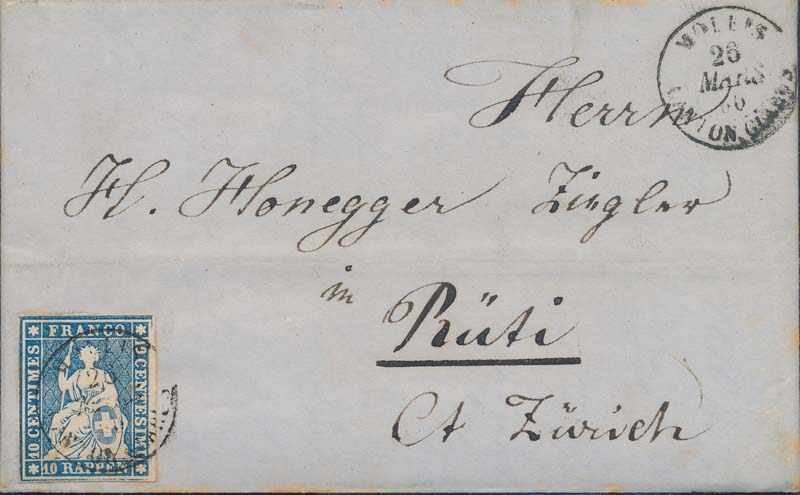 MOLLIS
26
MARS
60
CANTON GLARUS
Herrn
H. Honegger Ziegler
in
Rüti
Ct Zürich
FRANCO
10 CENTIMES
10 CENTESIMI
10 RAPPEN